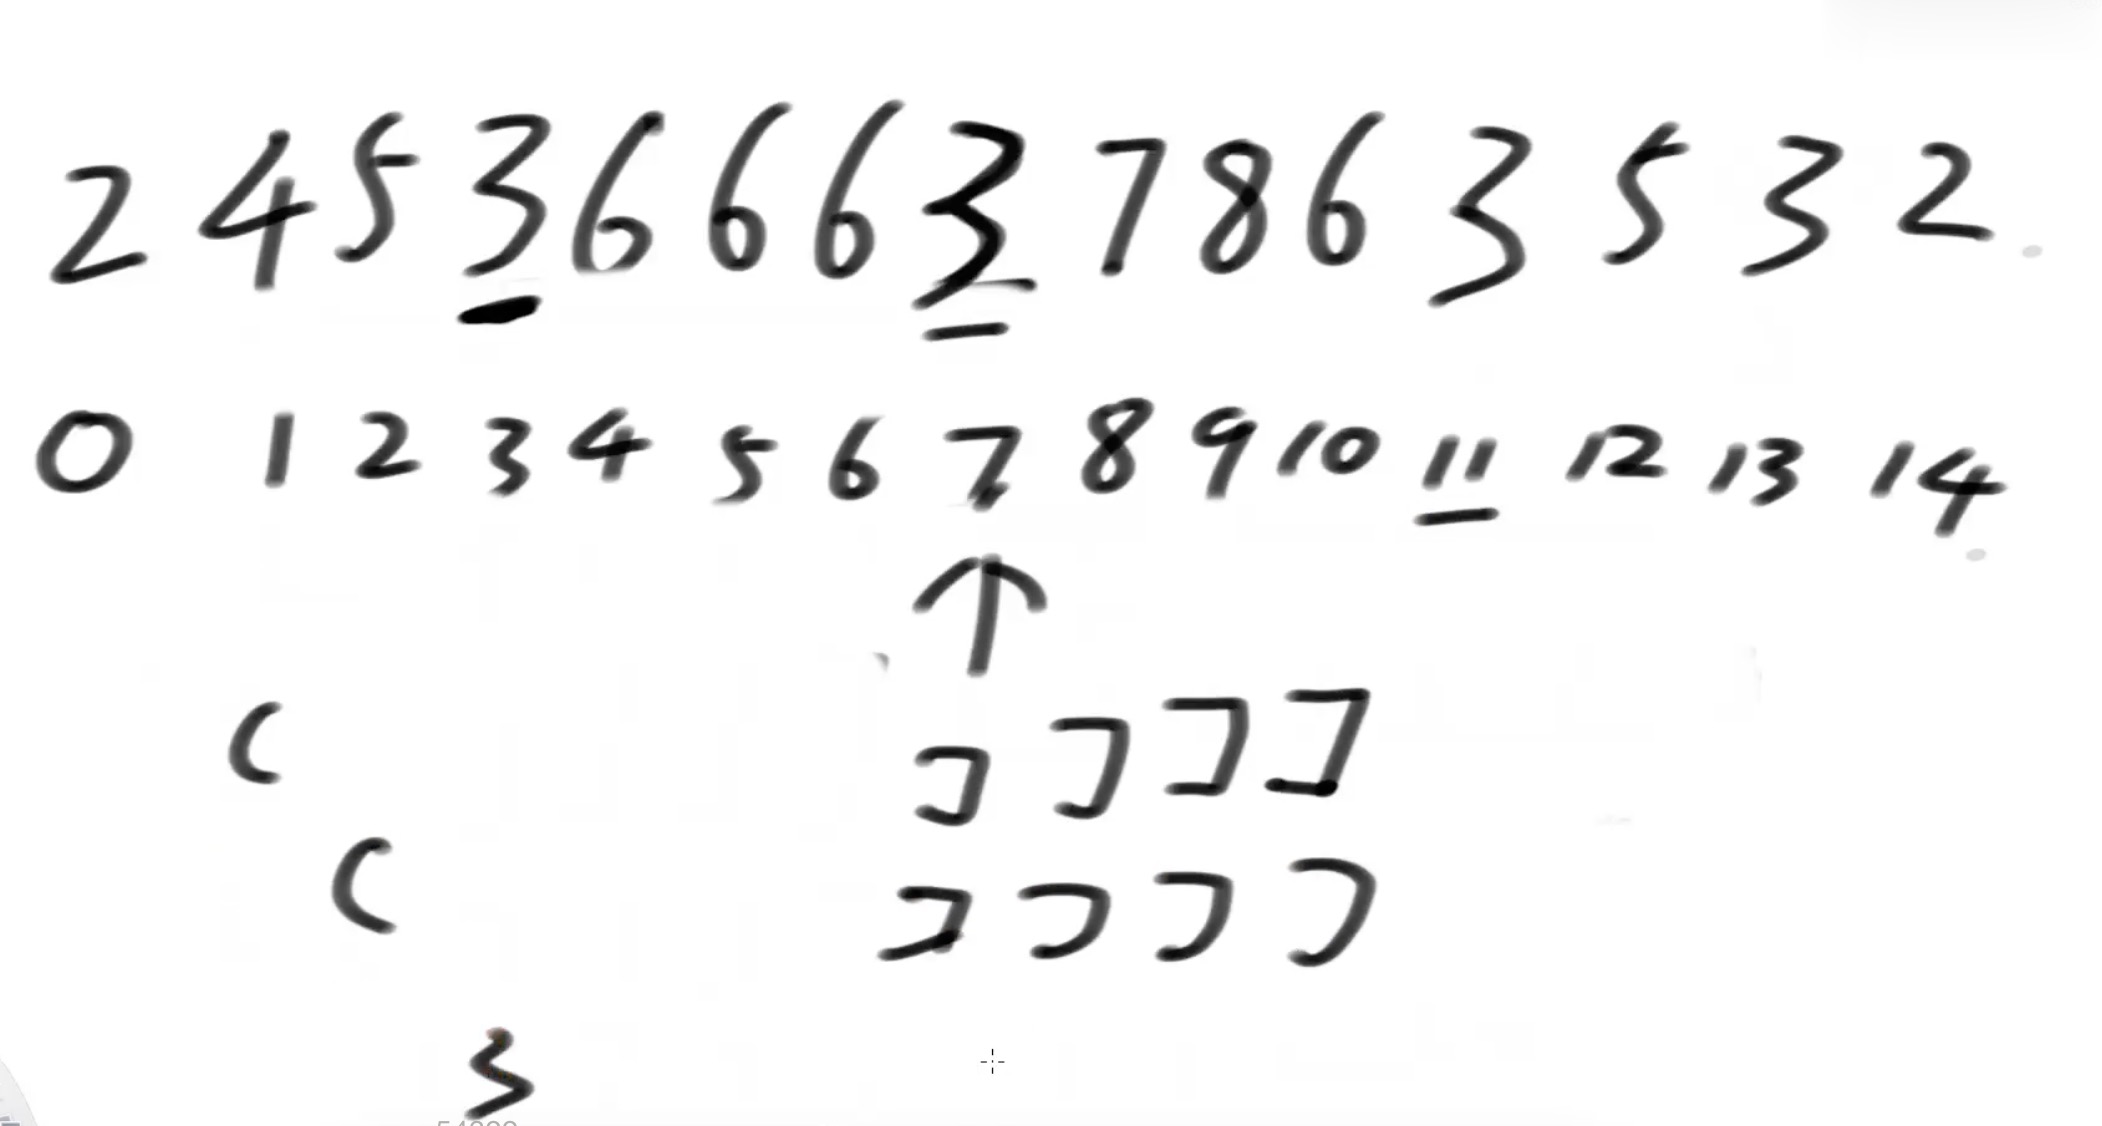 2 4 5 3 6 6 6 3 7 8 6 3 5 3 2
0 1 2 3 4 5 6 7 8 9 10 11 12 13 14
↑
( ] ] ] ]
( ] ] ] ]
3